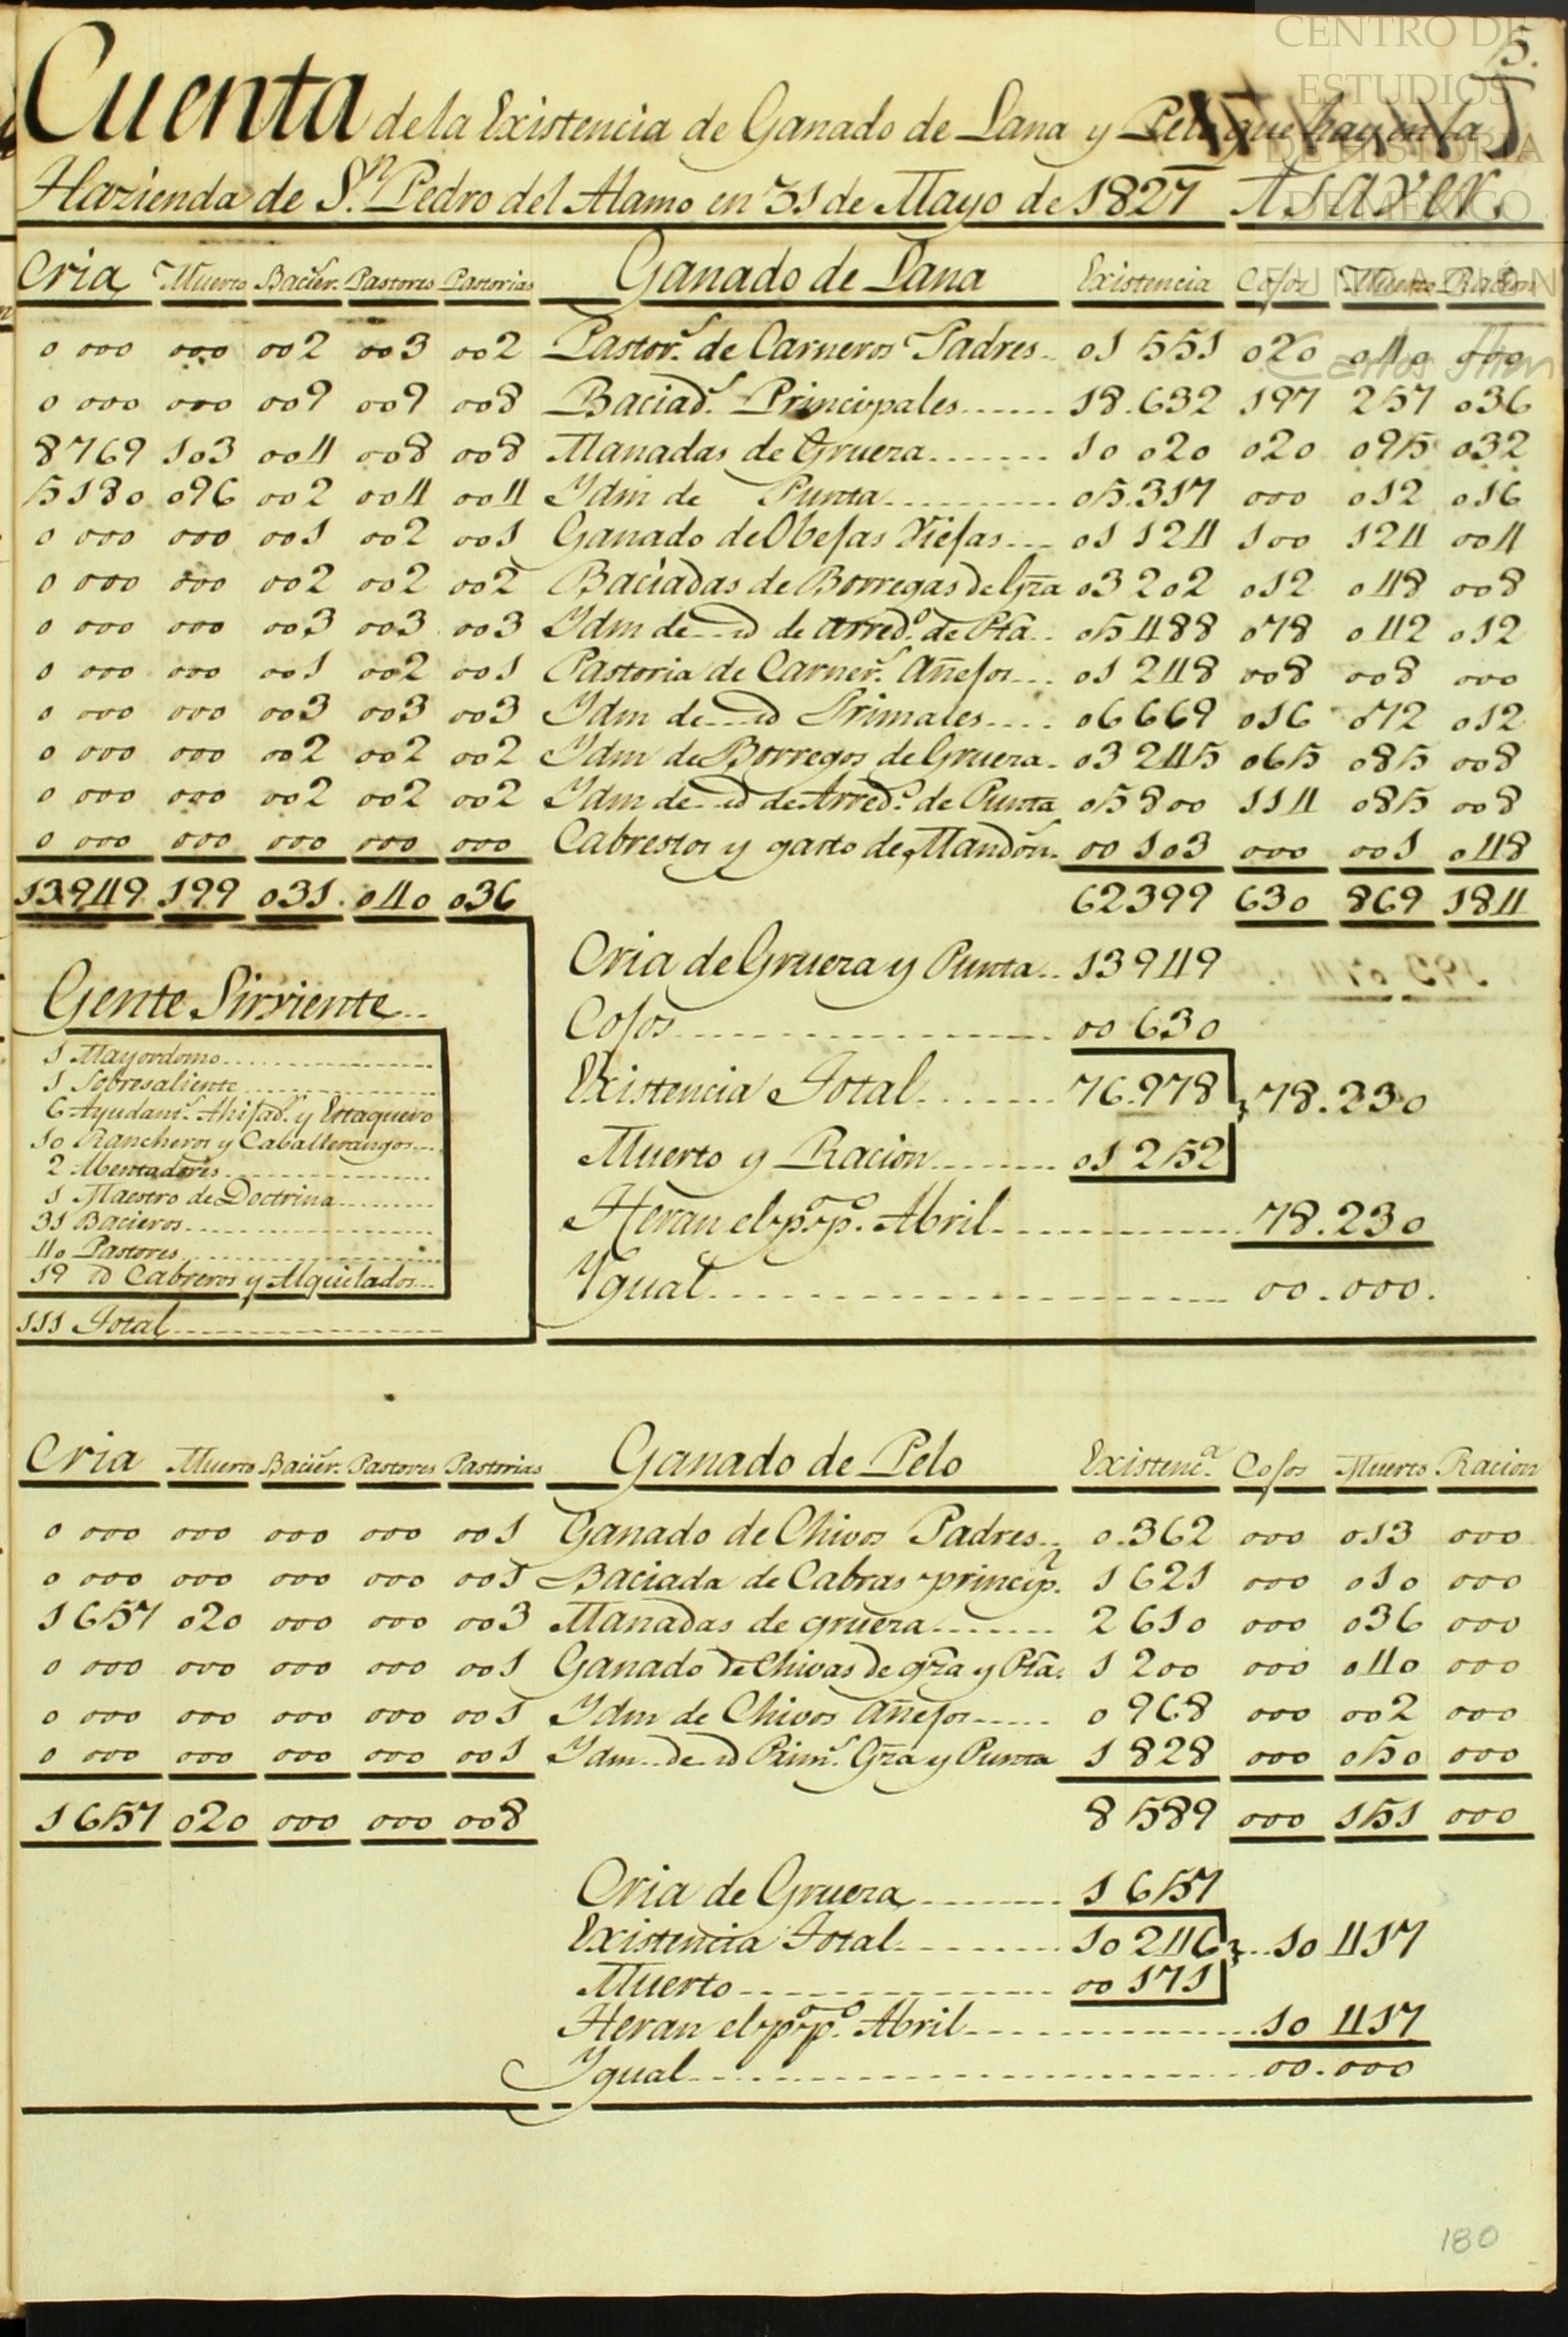 5.
Cuenta de la Existencia de Ganado de Lana y Pelo que hay en la
Hazienda de Sn. Pedro del Alamo en 31 de Mayo de 1827 A SAVER.
Cria Muerto Bacier.s Pastores Pastorias Ganado de Lana Existencia Cojos Muerto Racion
0 000 000 002 003 002 Pastor.s de Carneros Padres 01 551 020 040 000
0 000 000 009 009 008 Baciad.s Principales 18.632 197 257 036
8769 103 004 008 008 Manadas de Gruera 10 020 020 095 032
5180 096 002 004 004 Ydm de Punta 05.317 000 012 016
0 000 000 001 002 001 Ganado de Obejas Viejas 01 124 100 124 004
0 000 000 002 002 002 Baciadas de Borregas de Grza 03 202 012 048 008
0 000 000 003 003 003 Ydm de id de arred.o de Pta 05 488 078 042 012
0 000 000 001 002 001 Pastoria de Carner.s Añejos 01 248 008 008 000
0 000 000 003 003 003 Ydm de id Primales 06 669 016 072 012
0 000 000 002 002 002 Ydm de Borregos de Gruera 03 245 065 085 008
0 000 000 002 002 002 Ydm de id de Arred.o de Punta 05 800 114 085 008
0 000 000 000 000 000 Cabrestos y gasto de Mandon.s 00 103 000 001 048
13949 199 031 040 036 62399 630 869 184
Cria de Gruera y Punta 13949
Cojos 00 630
Existencia Total 76.978 78.230
Muerto y Racion 01 252
Heran el pp.o Abril 78.230
Ygual 00.000.
Gente Sirviente
1 Mayordomo
1 Sobresaliente
6 Ayudant.s Ahijad.r y Estaquero
10 Rancheros y Caballerangos
2 Mentadores
1 Maestro de Doctrina
31 Bacieros
40 Pastores
19 id Cabreros y Alquilados
111 Total
Cria Muerto Bacier.s Pastores Pastorias Ganado de Pelo Existenc.a Cojos Muerto Racion
0 000 000 000 000 001 Ganado de Chivos Padres 0.362 000 013 000
0 000 000 000 000 001 Baciada de Cabras princip.s 1 621 000 010 000
1 657 020 000 000 003 Manadas de gruera 2 610 000 036 000
0 000 000 000 000 001 Ganado de Chivas de grza y Pta. 1 200 000 040 000
0 000 000 000 000 001 Ydm de Chivos Añejos 0 968 000 002 000
0 000 000 000 000 001 Ydm de id Prim.s Grza y Punta 1 828 000 050 000
1 657 020 000 000 008 8 589 000 151 000
Cria de Gruera 1 657
Existencia Total 10 246 10 417
Muerto 00 171
Heran el pp.o Abril 10 417
Ygual 00.000
180
CENTRO DE
ESTUDIOS
DE HISTORIA
DE MÉXICO
FUNDACIÓN
Carlos Slim